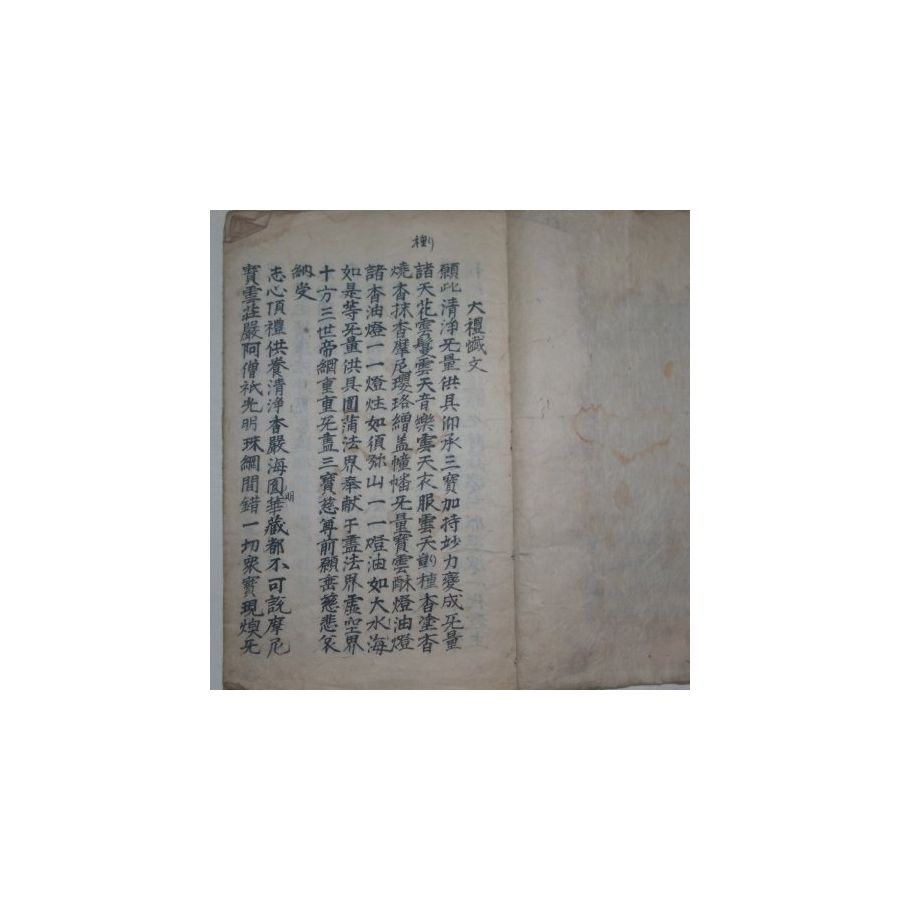 大禮懺文
願此清淨旡量供具仰承三寶加持妙力變成旡量
諸天花雲鬘雲天音樂雲天衣服雲天種種香塗香
燒香抹香摩尼瓔珞繒盖幢幡旡量寶雲酥燈油燈
諸香油燈一一燈炷如須弥山一一燈油如大水海
如是等旡量供具圎滿法界奉献于盡法界虛空界
十方三世帝網重重旡盡三寶慈尊前願垂慈悲哀
納受
志心頂禮供養清淨香嚴海圎華藏都不可說摩尼
明
寶雲莊嚴阿僧祇光明珠網間錯一切衆寶現煥旡